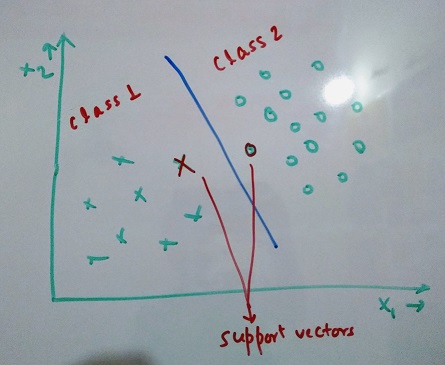 class 2
x2
class 1
x1
support vectors